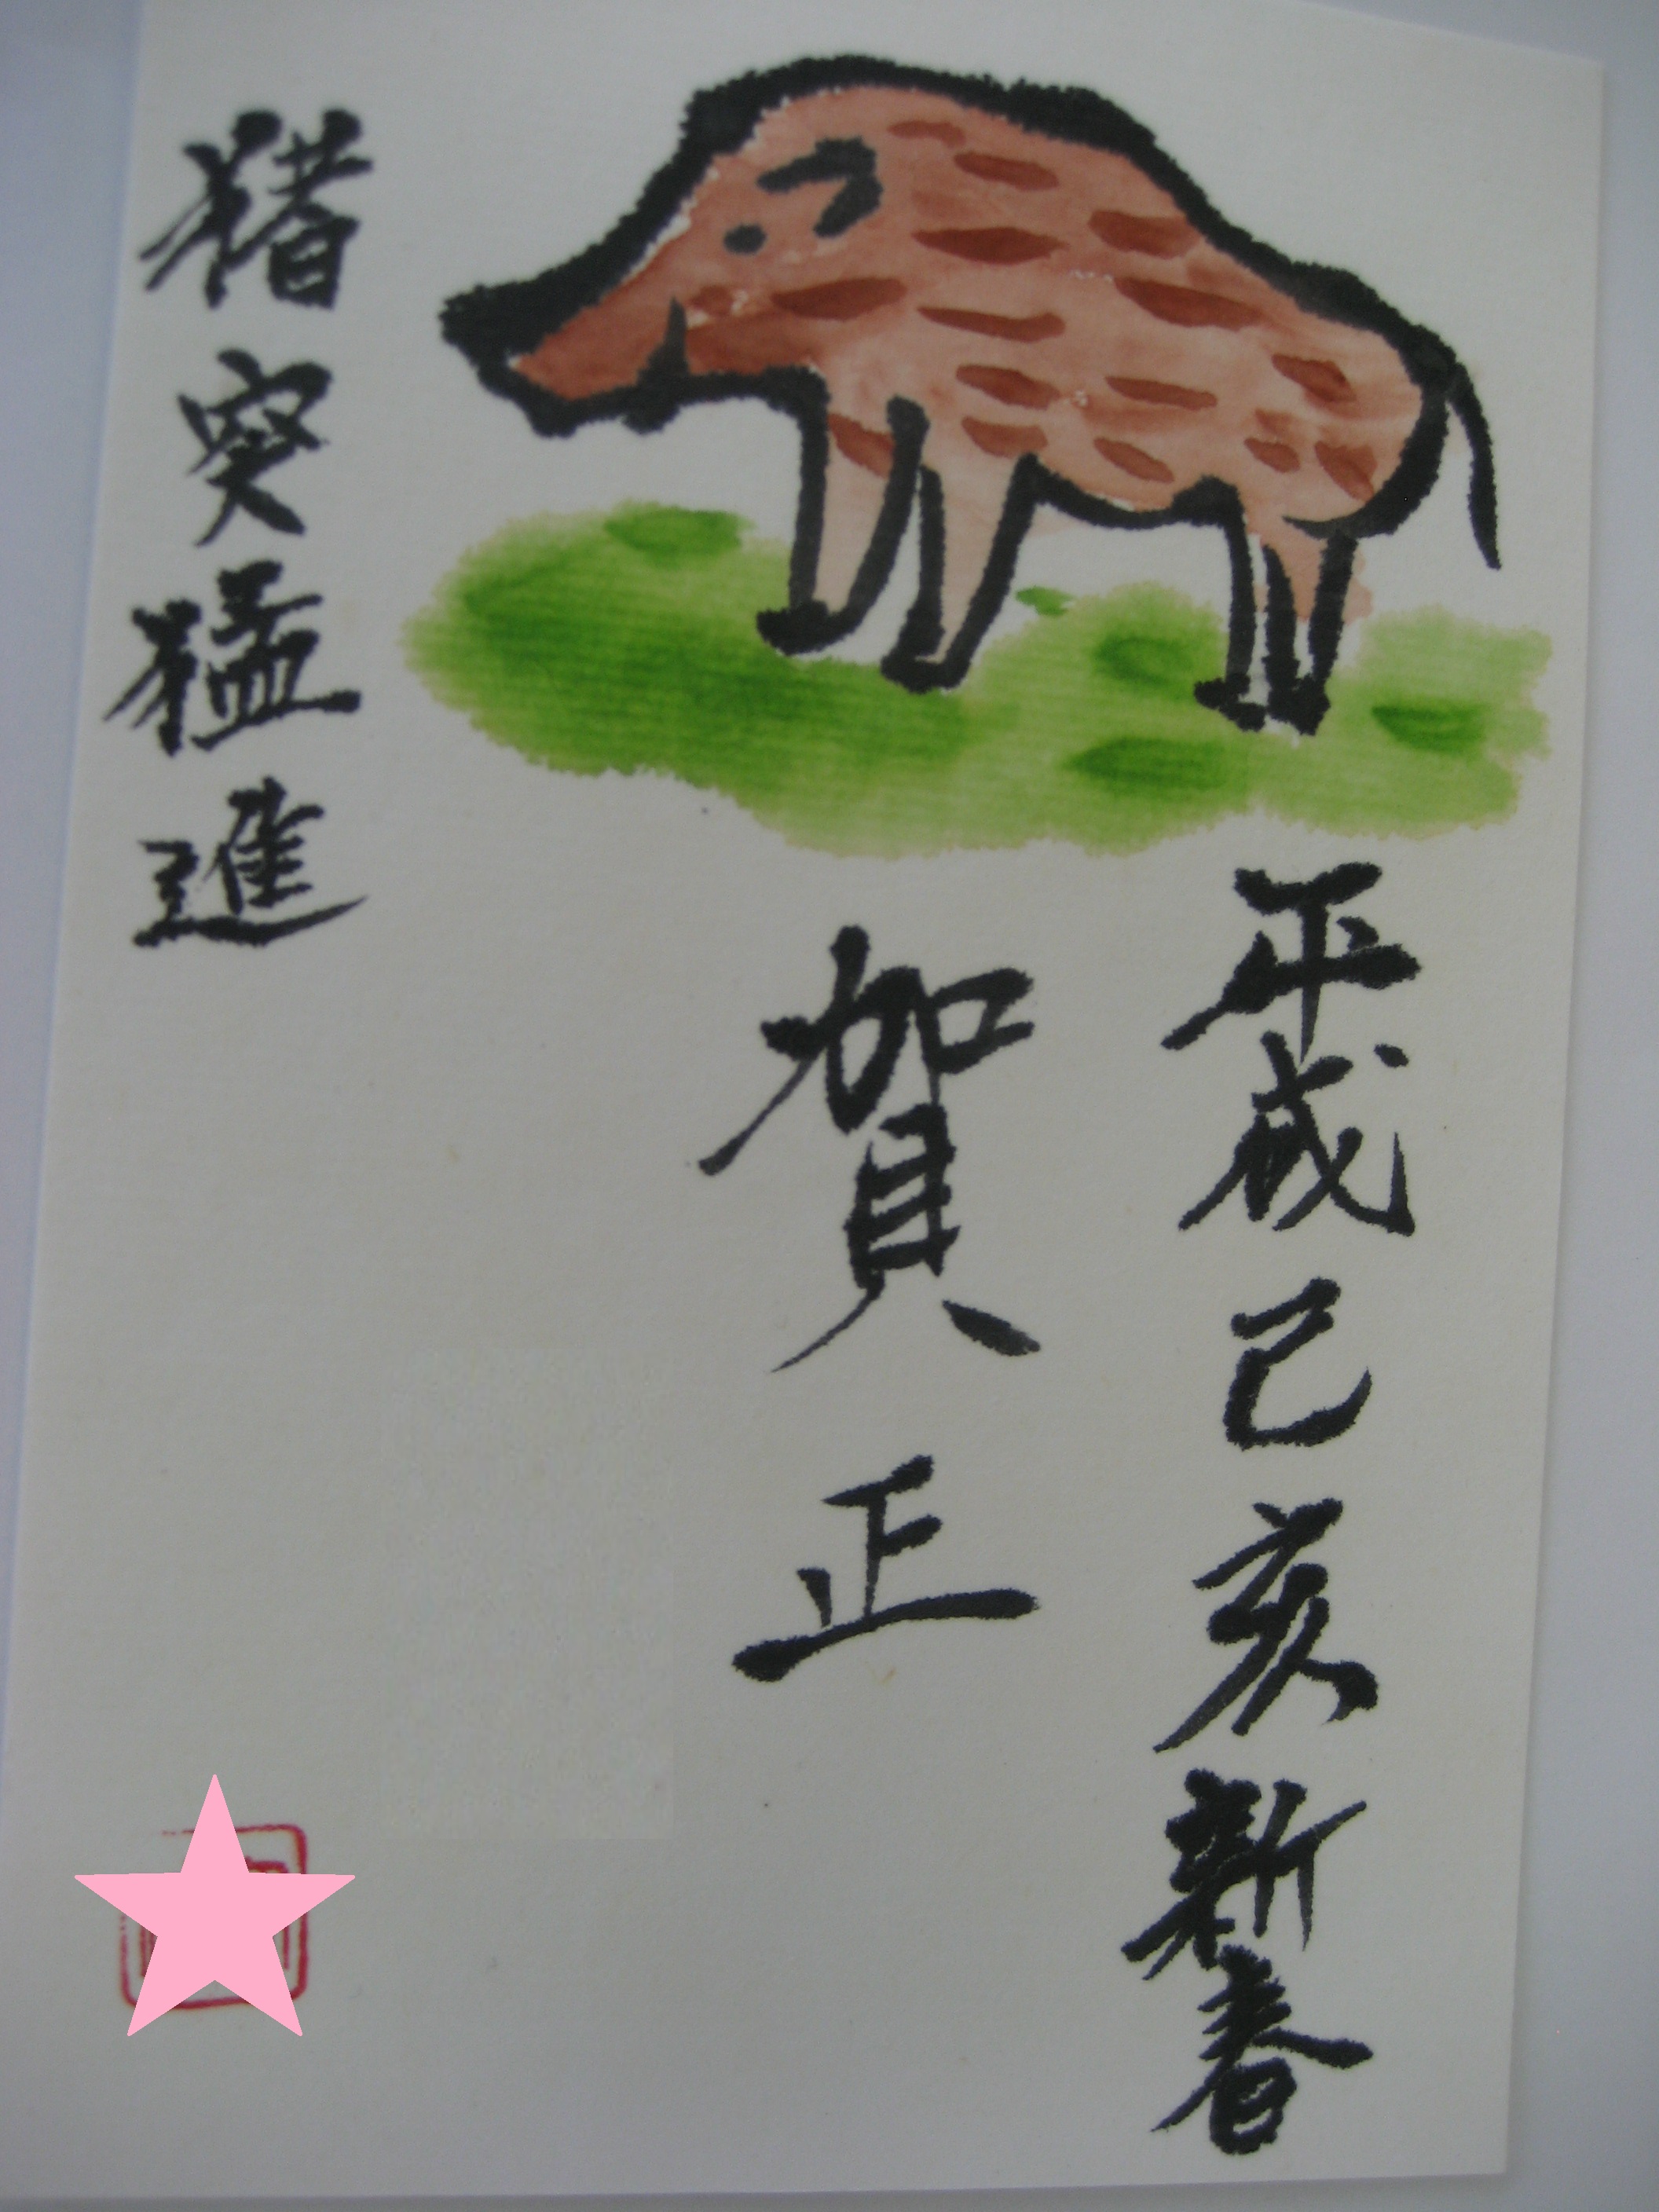 平成己亥新春
賀正
猪突猛進